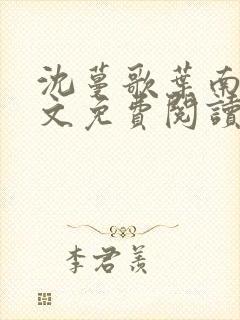 沈蔓歌葉南
文免費閱讀
李君羨